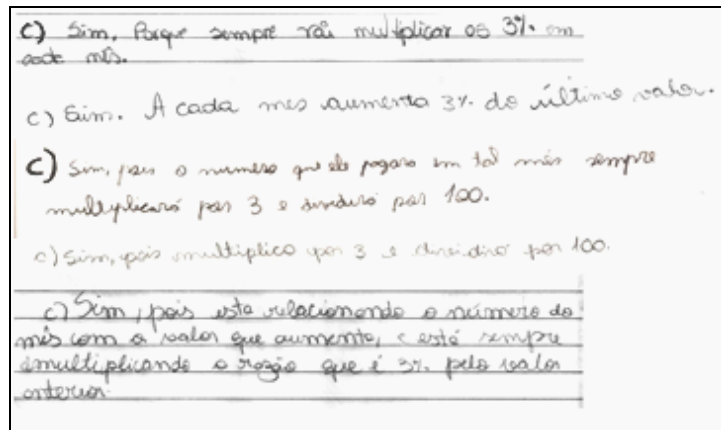 c) Sim. Porque sempre vai multiplicar os 3% em
cada mês.
c) Sim. A cada mes aumenta 3% do último valor.
c) Sim, pois o numero que ele pagara em tal mês sempre
multiplicará por 3 e dividirá por 100.
c) Sim, pois multiplico por 3 e dividira por 100.
c) Sim, pois esta relacionando o número do
mês com o valor que aumenta, e está sempre
multiplicando a razão que é 3% pelo valor
anterior.